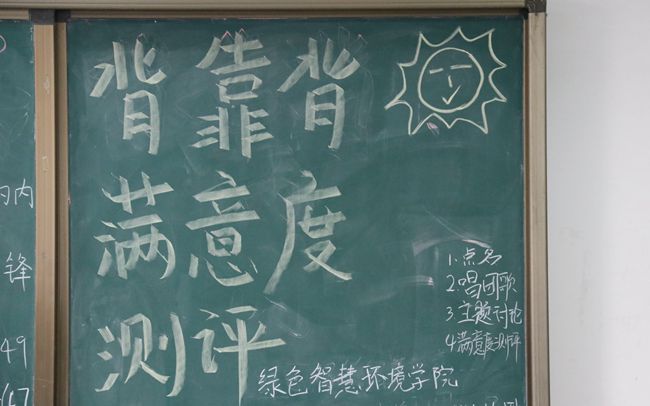 背靠背
满意度
测评
绿色智慧环境学院
1.点名
2.唱团歌
3主题讨论
4满意度测评
内
锋
49